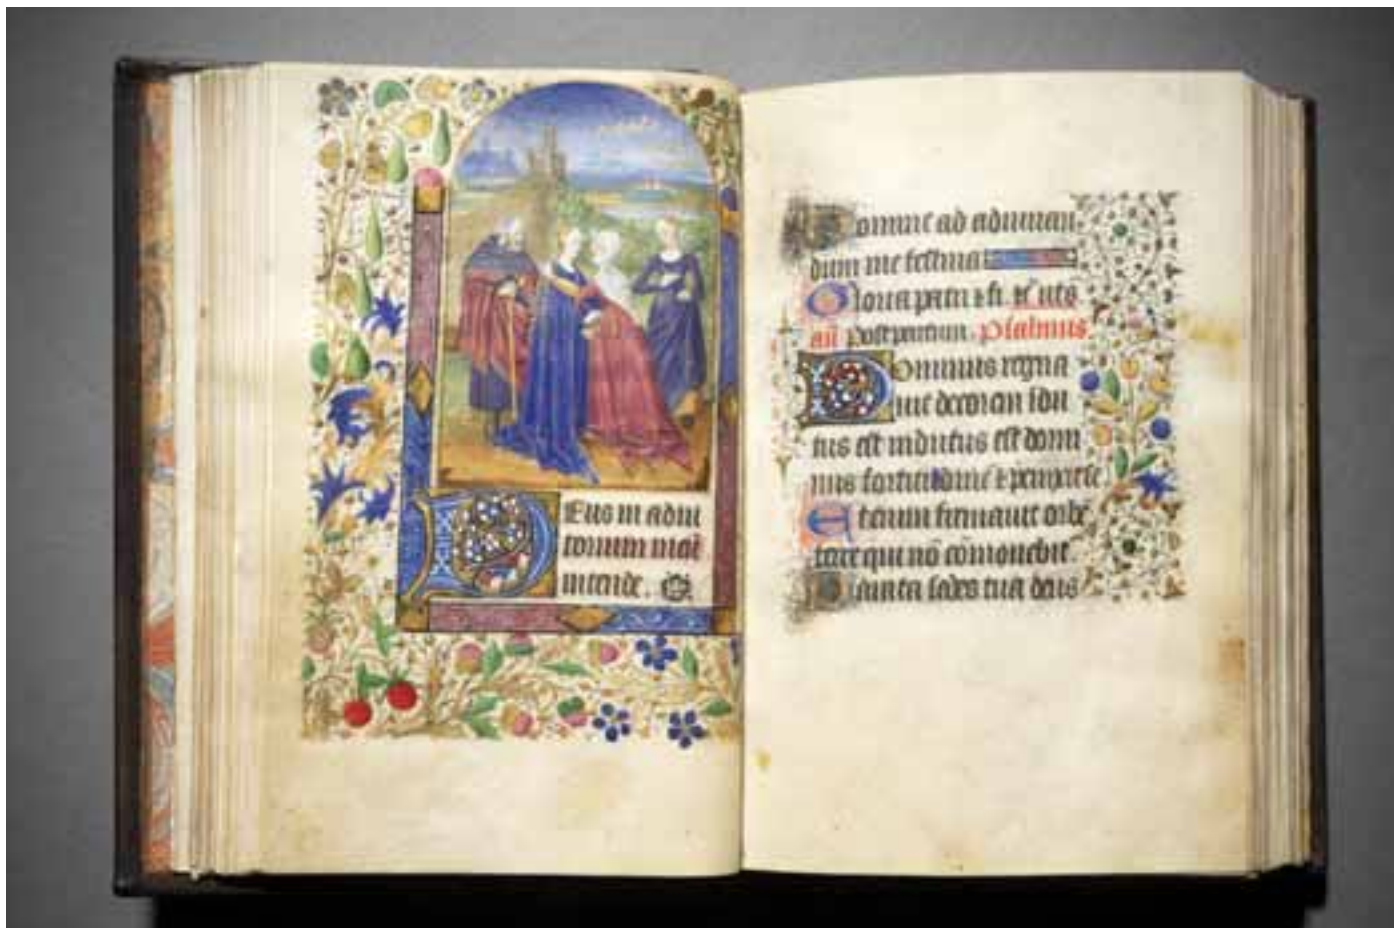 Deus in adiu
torium meū
intende.
Domine ad adiuuan
dum me festina
Gloria patri & fi. & uts
añ Post partum. Psalmus.
Dominus regna
uit decorem indu
tus est indutus est domi
nus fortitudine & precinxit se
Etenim firmauit orbē
terre qui nō cōmouebit
Parata sedes tua deus